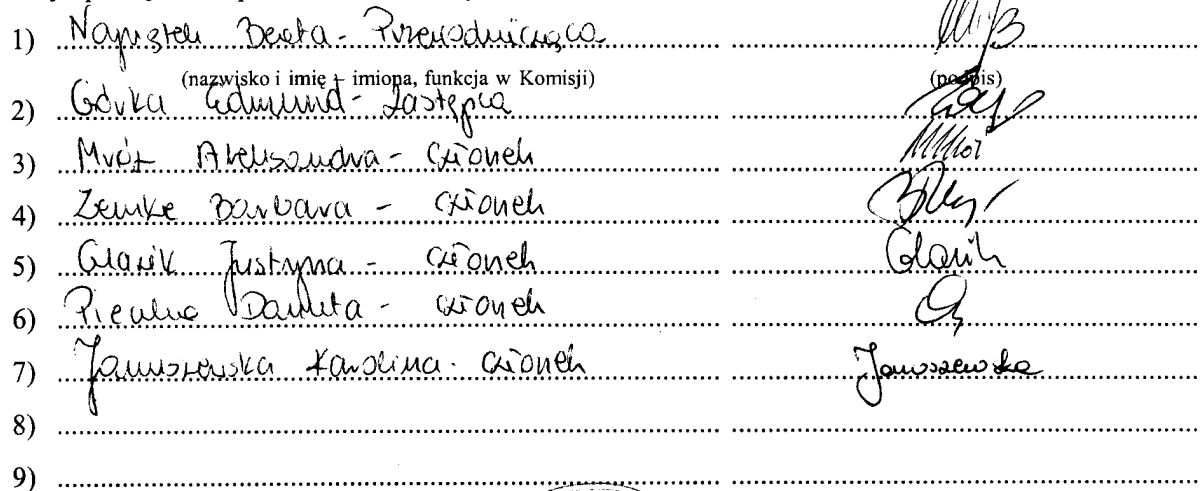 1) Napiątek Beata - Przewodnicząca
(nazwisko i imię – imiona, funkcja w Komisji) (podpis)
2) Górka Edmund - Zastępca
3) Mróz Aleksandra - członek
4) Zemke Barbara - członek
5) Glazik Justyna - członek Glazik
6) Danuta - członek
7) Januszewska Karolina - członek Januszewska
8)
9)